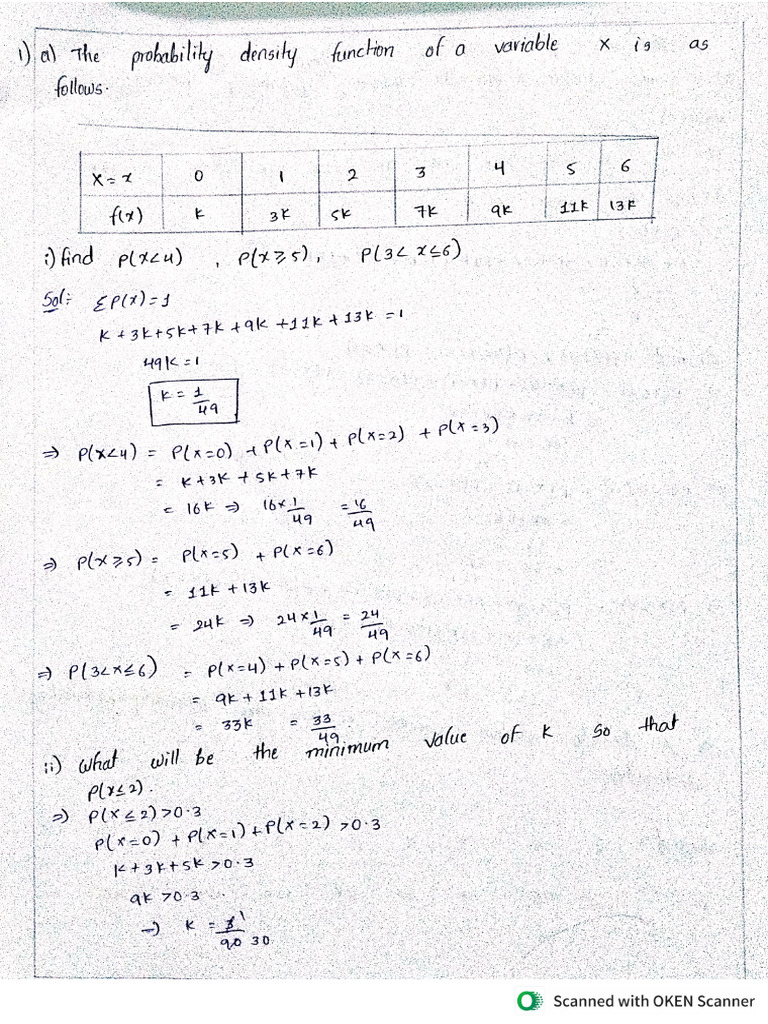 1) a) The probability density function of a variable X is as
follows.
X=x 0 1 2 3 4 5 6
f(x) K 3K 5K 7K 9K 11K 13K
i) find P(X<4) , P(X≥5), P(3<X≤6)
Sol:- ΣP(X)=1
K+3K+5K+7K+9K+11K+13K=1
49K=1
K = 1/49
⇒ P(X<4) = P(X=0) + P(X=1) + P(X=2) + P(X=3)
= K+3K+5K+7K
= 16K ⇒ 16×1/49 = 16/49
⇒ P(X≥5) = P(X=5) + P(X=6)
= 11K+13K
= 24K ⇒ 24×1/49 = 24/49
⇒ P(3<X≤6) = P(X=4) + P(X=5) + P(X=6)
= 9K+11K+13K
= 33K = 33/49
ii) what will be the minimum value of K so that
P(X≤2).
⇒ P(X≤2)>0.3
P(X=0) + P(X=1) + P(X=2) >0.3
K+3K+5K>0.3
9K>0.3
→ K = 3 1/90 30
Scanned with OKEN Scanner